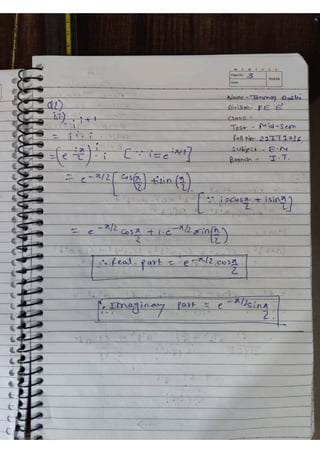 M T W T F S S
Page No.: 3
YOUVA
Date:
Division - FE E
Class:
Test - Mid-Sem
Roll No. 22IT1016
Subject - E.M
Branch - I.T.
Q1)
i^{i+1}
= i^i . i
= (e^{iπ/2})^i . i [∵ i = e^{iπ/2}]
= e^{-π/2} [cos(π/2) + i sin(π/2)]
[∵ i = cos π/2 + i sin π/2]
= e^{-π/2} cos π/2 + i . e^{-π/2} sin(π/2)
∴ Real part = e^{-π/2} . cos π/2
∴ Imaginary part = e^{-π/2} sin π/2